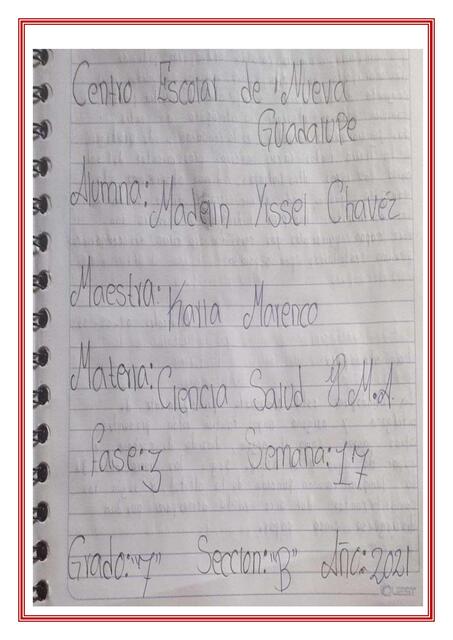 Centro Escolar de "Nueva
Guadalupe
Alumna: Madelin Yissel Chavéz
Maestra: Karla Marenco
Materia: Ciencia Salud y M.A.
Fase: 3 Semana: 17
Grado: "7" Seccion: "B" Año: 2021
QUEST